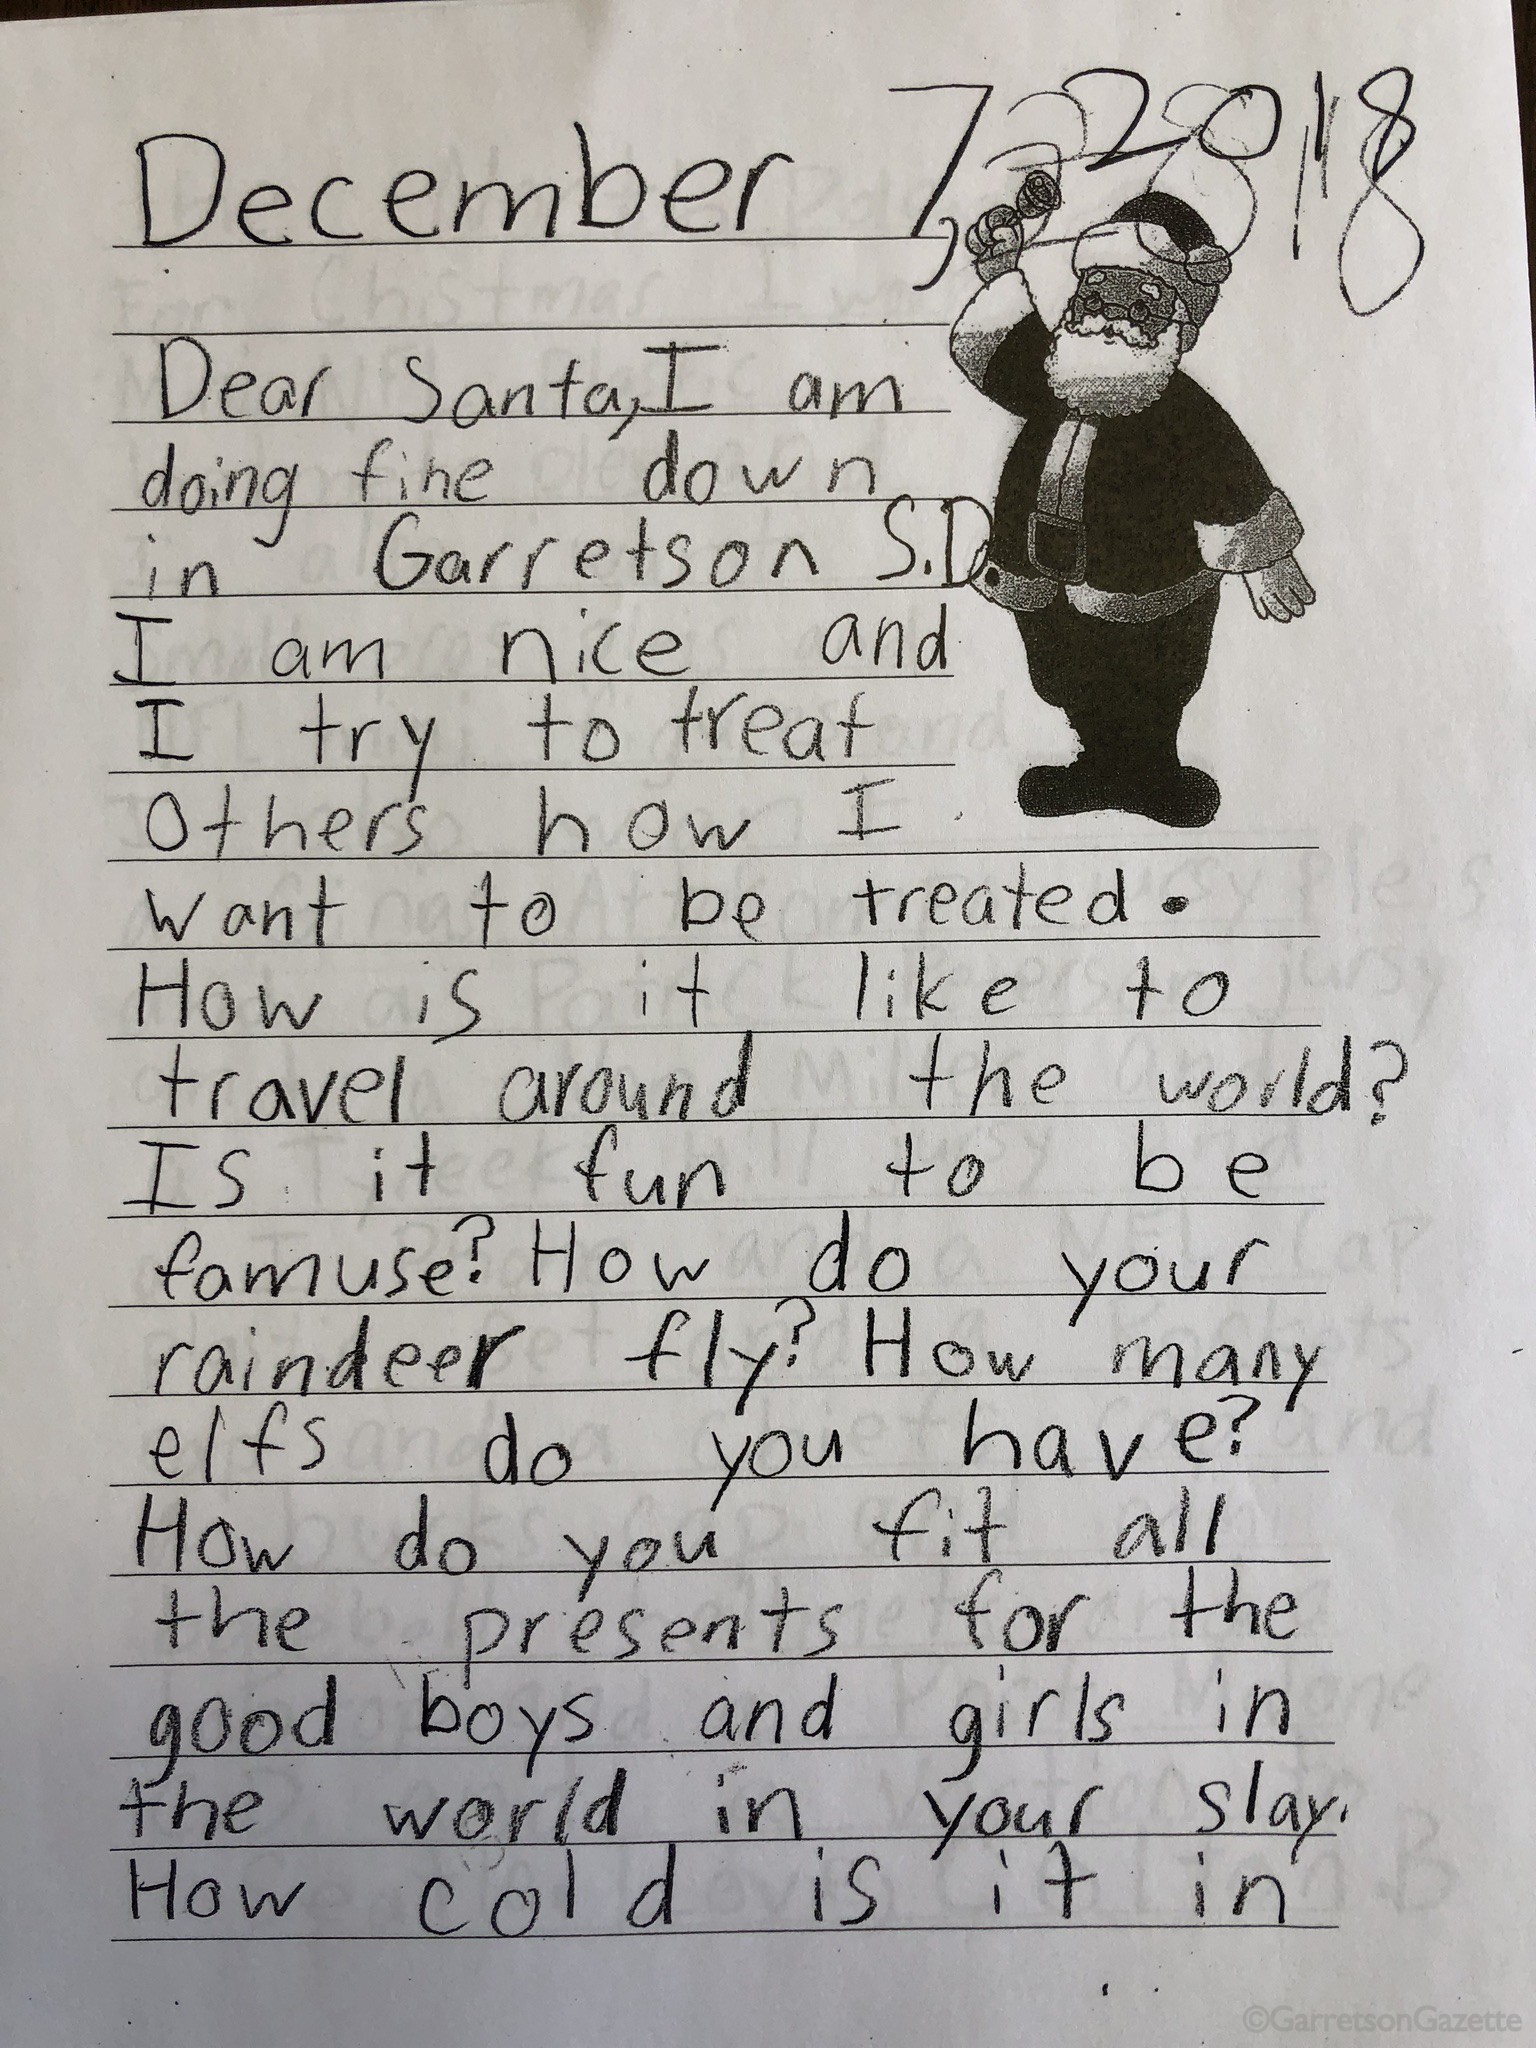 December 7, 2018
Dear Santa, I am
doing fine down
in Garretson S.D.
I am nice and
I try to treat
others how I
want to be treated.
How is it like to
travel around the world?
Is it fun to be
famuse? How do your
raindeer fly? How many
elfs do you have?
How do you fit all
the presents for the
good boys and girls in
the world in your slay.
How cold is it in
©GarretsonGazette